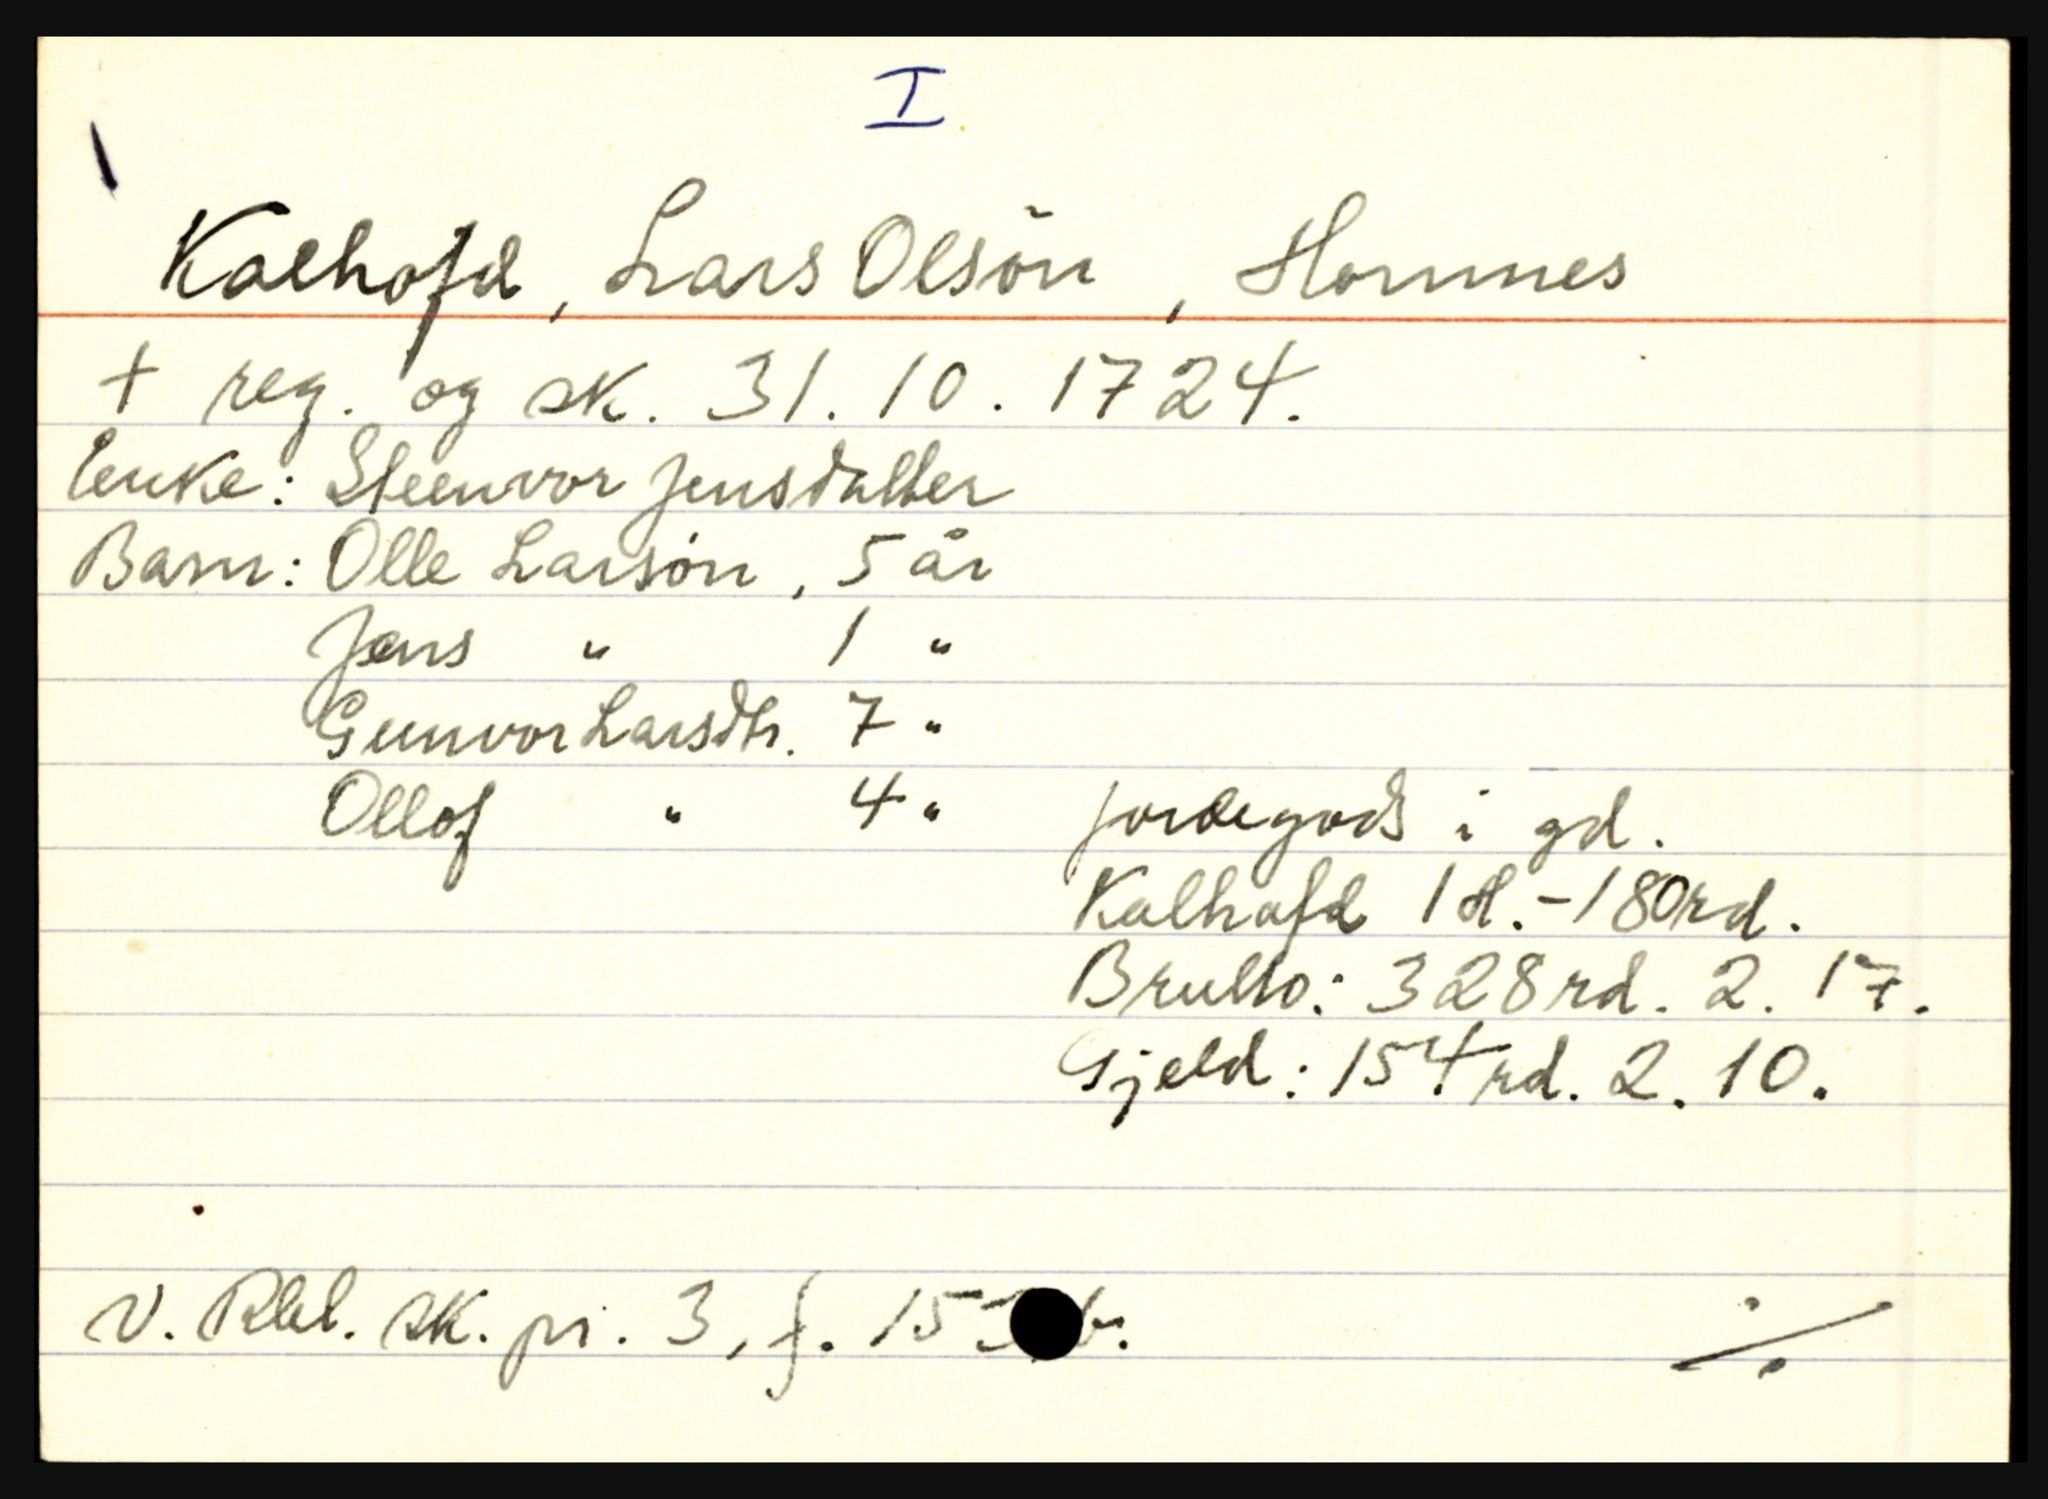 I
Kalhofd, Lars Olsøn, Homnes
+ reg. og sk. 31. 10. 1724.
Enke: Steenvor Jensdatter
Barn: Olle Larsøn, 5 år
Jens " 1 "
Gunvor Larsdtr. 7 "
Ollof " 4 "
jordegods i gd.
Kalhofd 1 H. - 180 rd.
Brutto: 328 rd. 2. 17.
Gjeld: 154 rd. 2. 10.
V. Rbl. sk. pr. 3, f. b.
./.